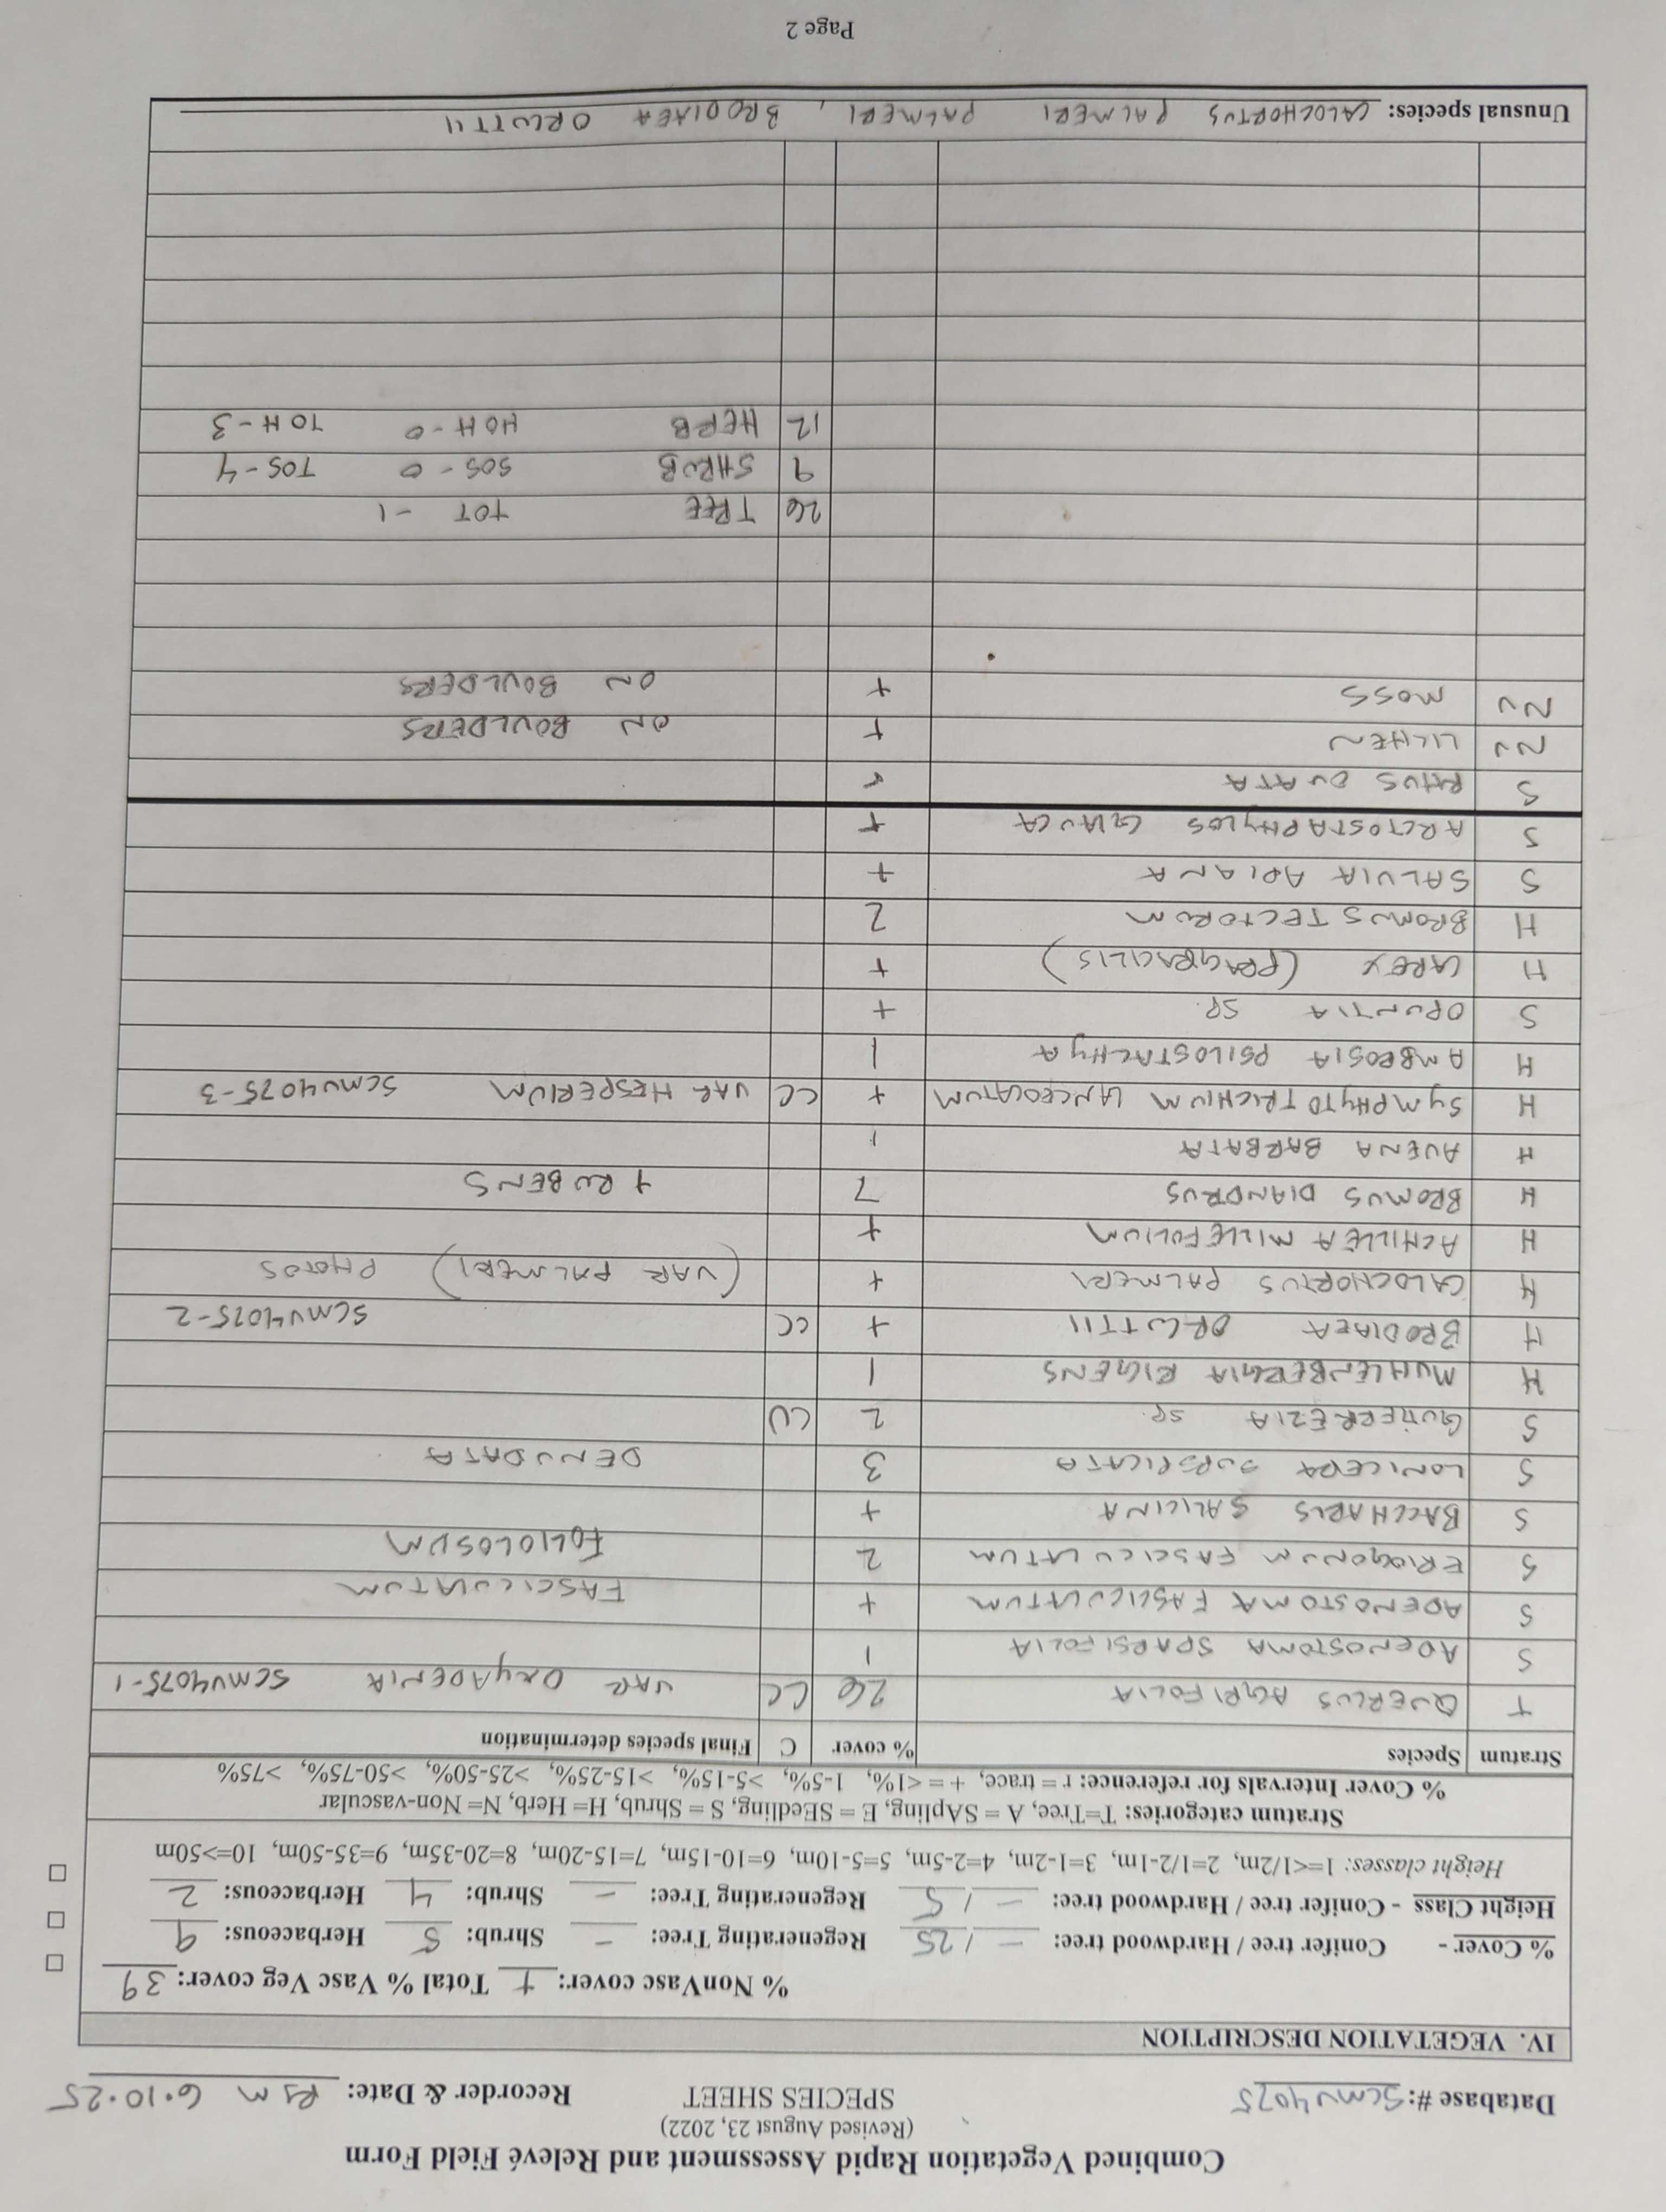 Combined Vegetation Rapid Assessment and Relevé Field Form
(Revised August 23, 2022)
Database #: SCMV4075 SPECIES SHEET Recorder & Date: RJM 6.10.25
IV. VEGETATION DESCRIPTION
% NonVasc cover: + Total % Vasc Veg cover: 39
% Cover - Conifer tree / Hardwood tree: - / 25 Regenerating Tree: - Shrub: 5 Herbaceous: 9
Height Class - Conifer tree / Hardwood tree: - / 5 Regenerating Tree: - Shrub: 4 Herbaceous: 2
Height classes: 1=<1/2m, 2=1/2-1m, 3=1-2m, 4=2-5m, 5=5-10m, 6=10-15m, 7=15-20m, 8=20-35m, 9=35-50m, 10=>50m
Stratum categories: T=Tree, A = SApling, E = SEedling, S = Shrub, H= Herb, N= Non-vascular
% Cover Intervals for reference: r = trace, + = <1%, 1-5%, >5-15%, >15-25%, >25-50%, >50-75%, >75%
Stratum Species % cover C Final species determination
T QUERCUS AGRIFOLIA 26 CC VAR OXYADENIA SCMV4075-1
S ADENOSTOMA SPARSIFOLIA 1
S ADENOSTOMA FASCICULATUM + FASCICULATUM
S ERIOGONUM FASCICULATUM 2 FOLIOLOSUM
S BACCHARIS SALICINA +
S LONICERA SUBSPICATA 3 DENUDATA
S GUTIERREZIA SP. 2 CU
H MUHLENBERGIA RIGENS 1
H BRODIAEA ORCUTTII + CC SCMV4075-2
H CALOCHORTUS PALMERI + (VAR PALMERI) PHOTOS
H ACHILLEA MILLEFOLIUM +
H BROMUS DIANDRUS 7 + RUBENS
H AVENA BARBATA 1
H SYMPHYTOTRICHIUM LANCEOLATUM + CC VAR HESPERIUM SCMV4075-3
H AMBROSIA PSILOSTACHYA 1
S OPUNTIA SP. +
H CAREX (PRAGRACILIS) +
H BROMUS TECTORUM 2
S SALVIA APIANA +
S ARCTOSTAPHYLOS GLAUCA +
S RHUS OVATA r
NV LICHEN + ON BOULDERS
NV MOSS + ON BOULDERS
26 TREE TOT -1
9 SHRUB SOS - 0 TOS - 4
12 HERB HOH - 0 TOH - 3
Unusual species: CALOCHORTUS PALMERI PALMERI, BRODIAEA ORCUTTII
Page 2